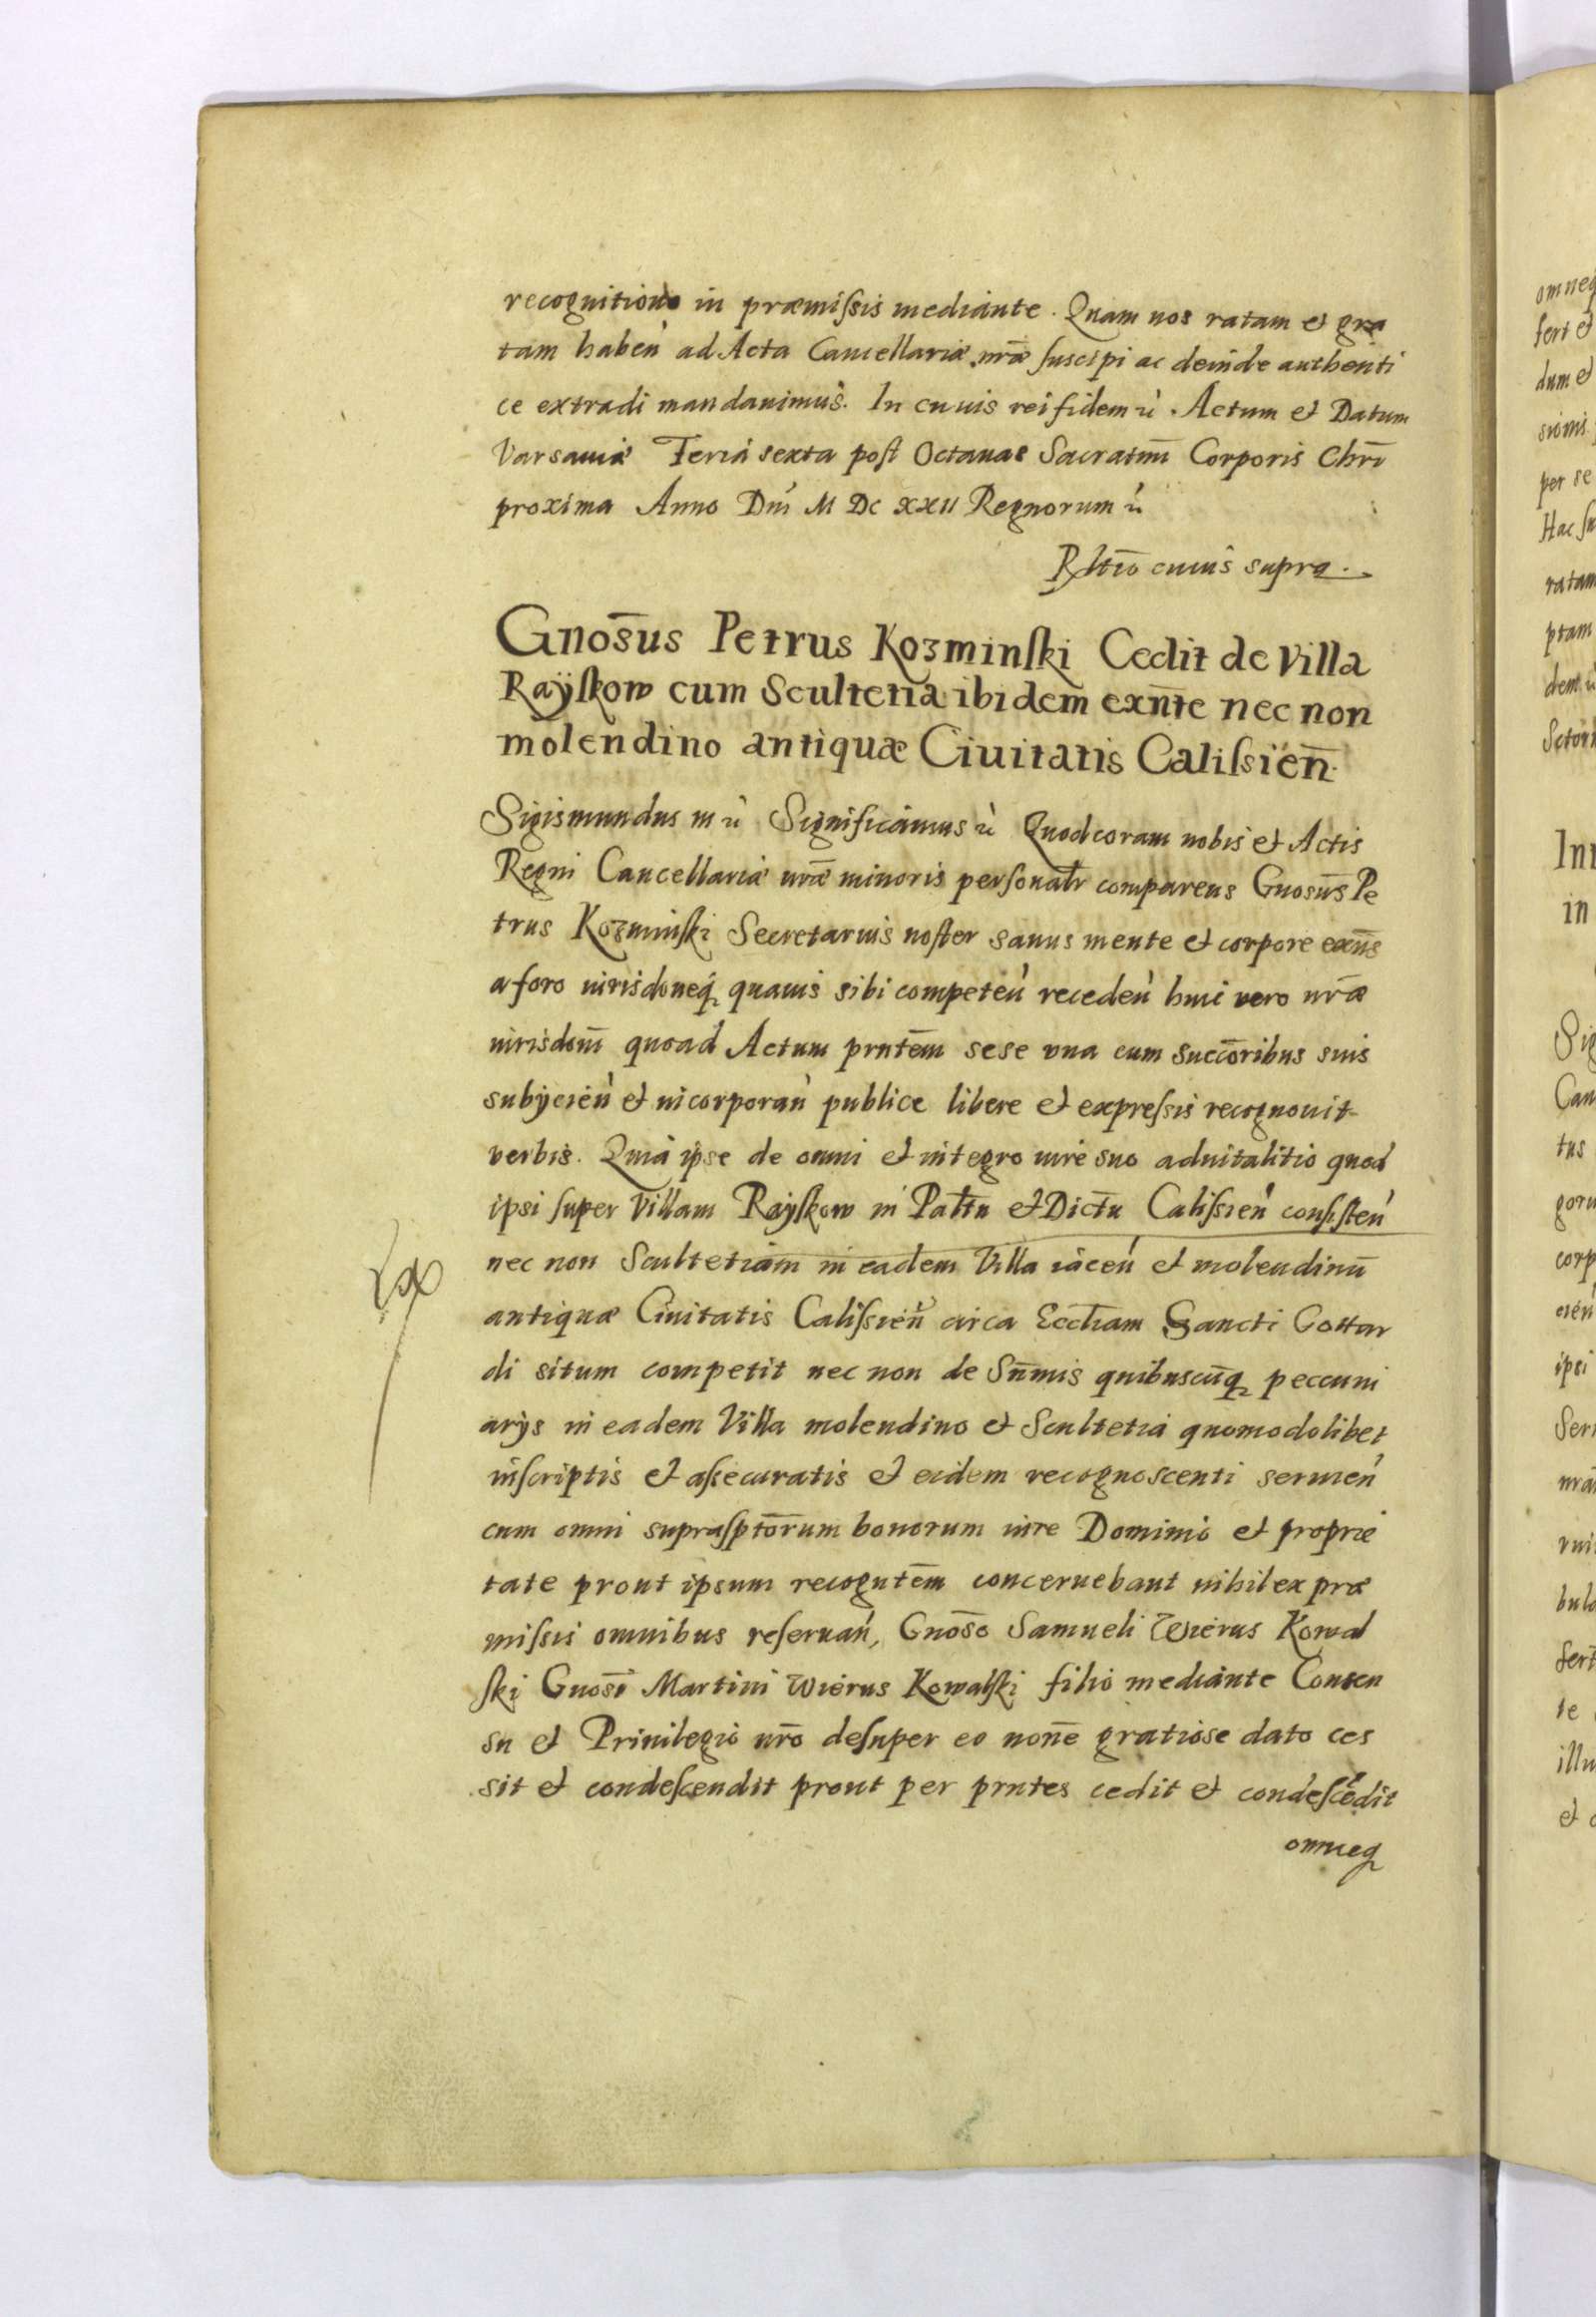 recognitione in præmissis mediante. Quam nos ratam et gra
tam haben̄ ad Acta Cancellariæ nr̄æ suscipi ac deinde authenti
ce extradi mandauimus. In cuius rei fidem ꝛc̄. Actum et Datum
Varsauiæ Feria sexta post Octauas Sacratm̄i Corporis Chr̄i
proxima Anno Dn̄i M DC XXII Regnorum ꝛc̄
Rltio cuius supra.
Gnos̄us Petrus Kozminski Cedit de Villa
Raÿskow cum Scultetia ibidem̄ exn̄te nec non
molendino antiquæ Ciuitatis Calissien̄.
Sigismundus III ꝛc̄ Significamus ꝛc̄ Quod coram nobis et Actis
Regni Cancellariæ nr̄æ minoris personalr̄ comparens Gnosūs Pe
trus Kozminski Secretarius noster sanus mente et corpore exn̄s
a foro iurisdoneq̨ quauis sibi competen̄ receden̄ huic vero nr̄æ
iurisdoni̅ quoad Actum prntēm sese vna cum succōribus suis
subijcien̄ et incorporan̄ publice libere et expressis recognouit
verbis. Quia ipse de omni et integro iure suo aduitalitio quod
ipsi super Villam Rayskow in Paltn̄ et Dictu̅ Calissien̄ consisten̄
nec non Scultetiam in eadem Villa iacen̄ et molendinū
antiquæ Ciuitatis Calissien̄ circa Eccl̄iam Sancti Gottar
di situm competit nec non de Sum̄is quibuscūq̨ peccuni
arijs in eadem Villa molendino et Scultetia quomodolibet
inscriptis et assecuratis et eidem recognoscenti seruien̄
cum omni suprasptōrum bonorum iure Dominio et proprie
tate prout ipsum recogntēm concernebant nihil ex præ
missis omnibus reseruan̄, Gnōso Samueli Wierus Kowal
ski Gnosī Martini Wierus Kowalski filio mediante Consen
su et Priuilegio nr̄o desuper eo nōīe gratiose dato ces
sit et condescendit prout per prntes cedit et condescēdit
omneq̨